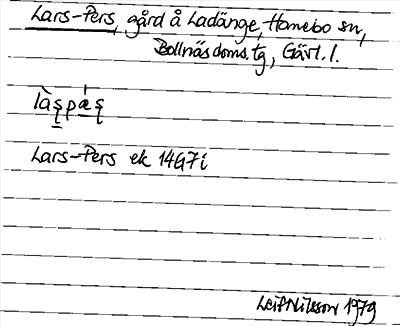 Lars-Pers, gård å Ladänge, Hanebo sn,
Bollnäs doms. tg, Gävl. l.
Lars-Pers ek 14G7i
Leif Nilsson 1979